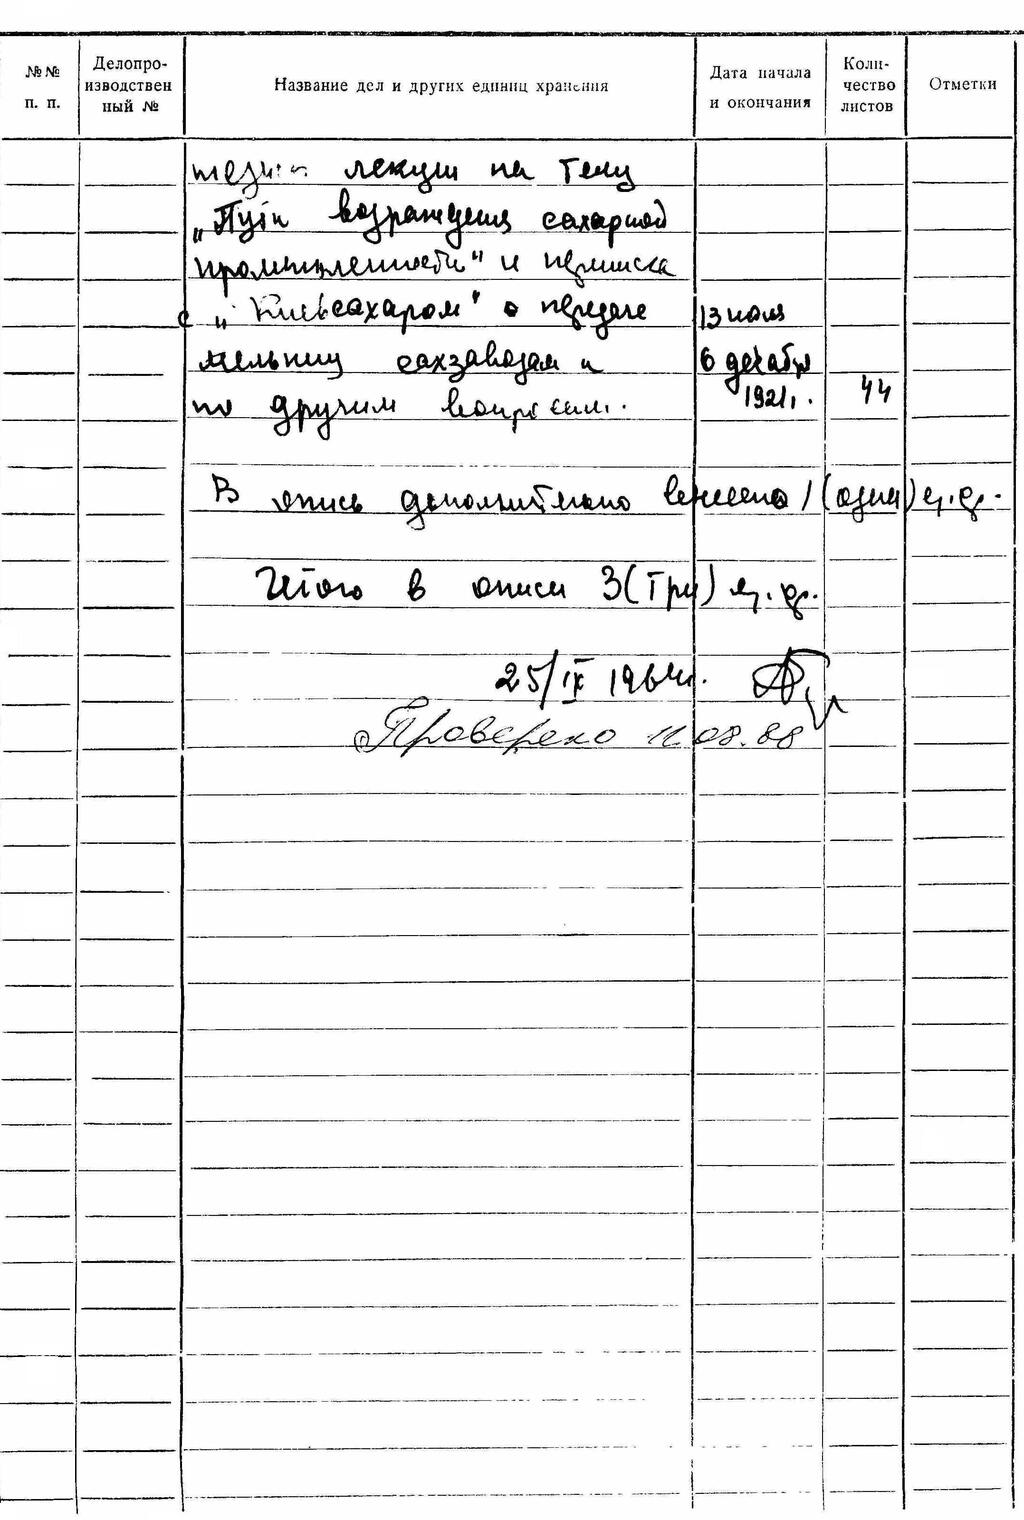 №№ п. п.
Делопро-
изводствен
ный №
Название дел и других единиц хранения
Дата начала
и окончания
Коли-
чество
листов
Отметки
тезисы лекции на тему
„Пути возрождения сахарной
промышленности" и переписка
с „Киевсахаром" о передаче 13 июля
мельниц сахзаводам и 6 декабря
по другим вопросам. 1921г. 44
В опись дополнительно внесено 1 (один) ед. хр.
Итого в описи 3 (три) ед. хр.
25/IX 1964г.
Проверено 11.08.88